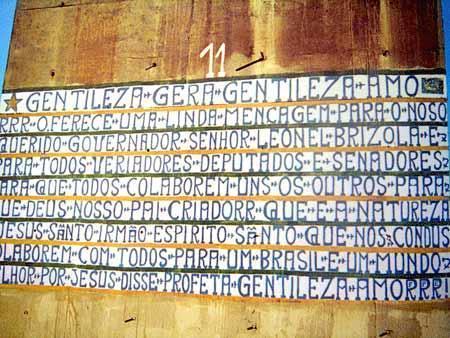 11
GENTILEZA GERA GENTILEZA AMO
RRR O.FERECE UMA LINDA MENCAGEM PARA O NOSO
QUERIDO GOVERNADOR SENHOR LEONEL BRIZOLA E
PARA TODOS VERIADORES DEPUTADOS E SENADORES
ARA QUE TODOS COLABOREM UNS OS OUTROS PARA
UE DEUS NOSSO PAI CRIADORR QUE E A NATUREZA
JESUS SANTO IRMÃO ESPIRITO SANTO QUE NOS CONDUS
OLABOREM COM TODOS PARA UM BRASIL E UM MUNDO
LHOR POR JESUS DISSE PROFETA GENTILEZA AMORRR!